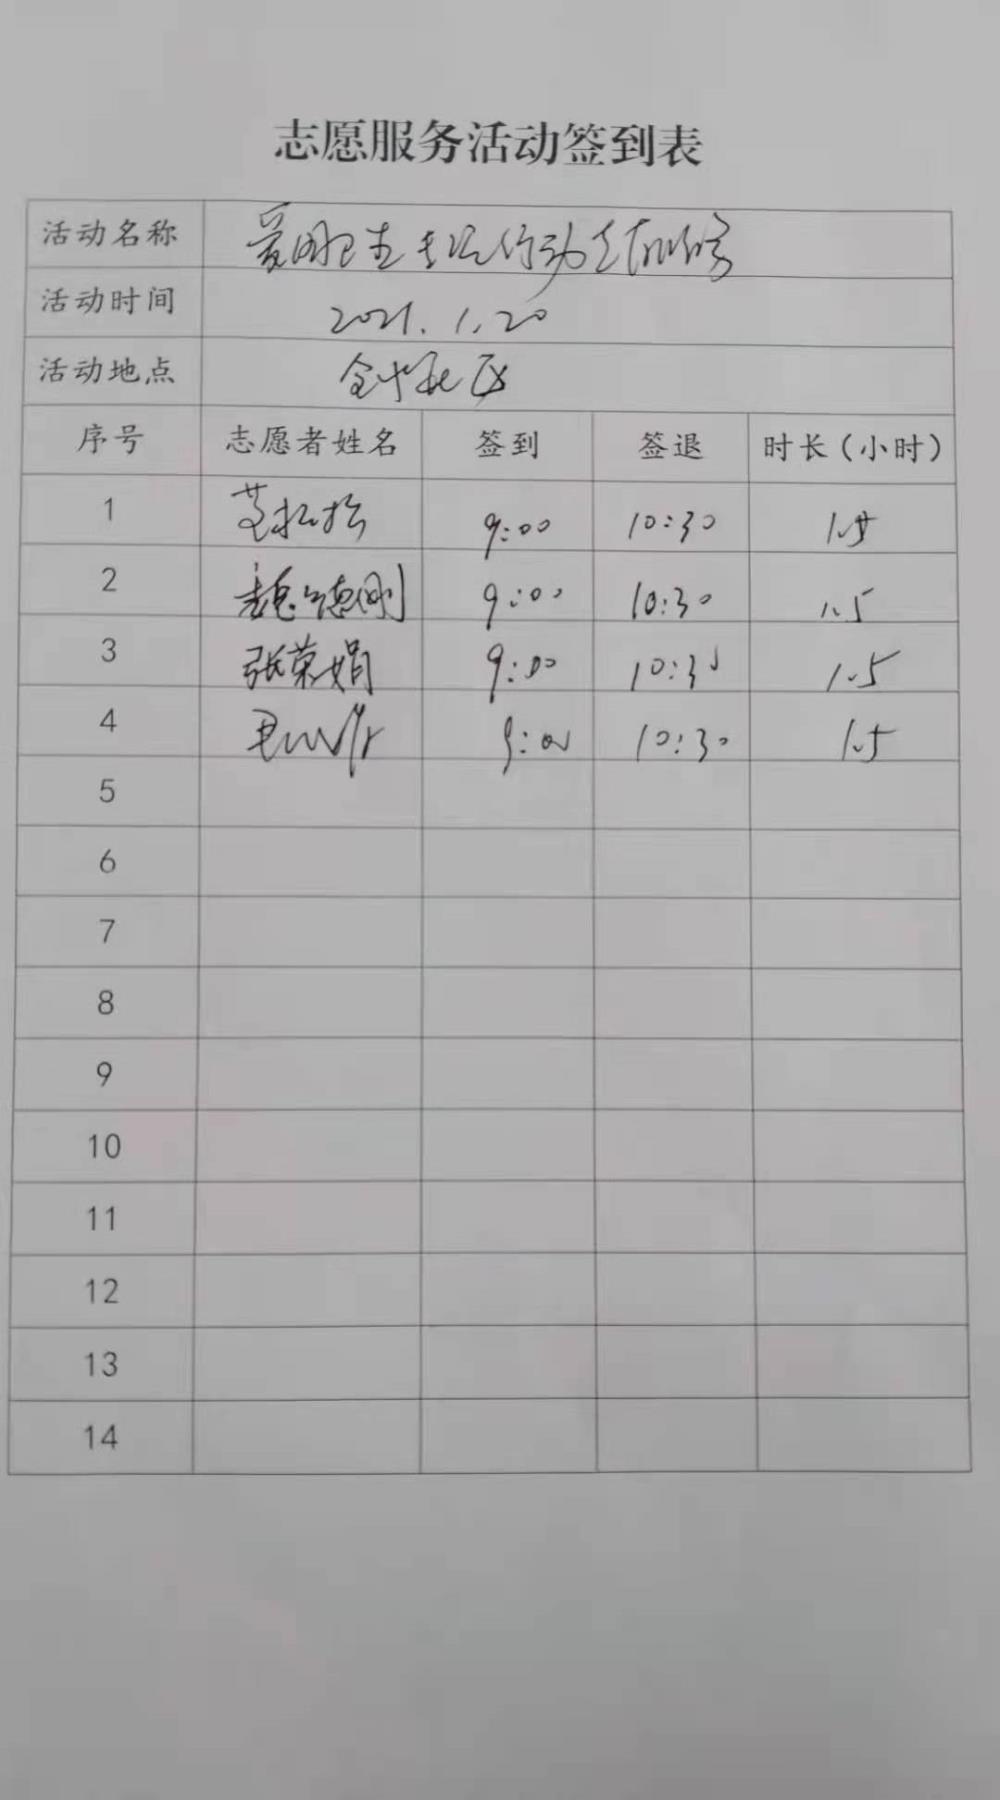 志愿服务活动签到表
活动名称 爱国卫生专项行动志愿服务
活动时间 2021.1.20
活动地点 社区
序号 志愿者姓名 签到 签退 时长(小时)
1 9:00 10:30 1.5
2 魏德刚 9:00 10:30 1.5
3 张荣娟 9:00 10:30 1.5
4 9:00 10:30 1.5
5
6
7
8
9
10
11
12
13
14